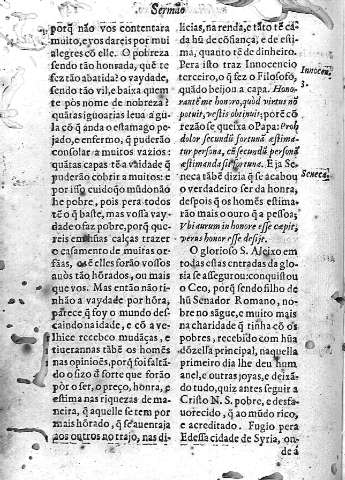 Sermão
porq̃ não vos contentara
muito, e yos dareis por mui
alegres cõ elle. O pobreza
sendo tão honsada, quē te
fez tão abatida? o vaydade,
sendo tão vil, e baixa quem
te pòs nome de nobreza?
quãtas iguoarias leua a gu-
la cõ q̃ anda o estamago pe-
jado, e enfermo, q̃ puderão
consolar a muitos vazios:
quãtas capas tẽ a vaidade q̃
puderão cobrir a muitos: e
por isso cuido q̃ o mũdo não
he pobre, pois pera todos
tẽ o q̃ baste, mas vossa vay-
dade o faz pobre, porq̃ que-
reis em suas calças trazer
o casamento de muitas or-
fãas, os e elles forão vossos
auòs tão hõrados, ou mais
que vos. Mas então não ti-
nhão a vaydade por hõra,
parece q̃ foy o mundo des-
caindo na idade, e cõ a ve-
lhice recebeo mudãças, e
tiuerannas tãbē os homēs
nas opiniões, porq̃ foi faltã-
do o sizo d̃ sorte que forão
pór o ser, o preço, honra, e
estima nas riquezas de ma-
neira, q̃ aquelle se tem por
mais hõrado, q̃ se auentaja
aos outros no trajo, nas di-
licias, na renda, e tãto tẽ cà-
da hũ de cõfiança, e de esti-
ma, quanto tẽ de dinheiro.
Pera isto traz Innocencio
terceiro, o q̃ fez o Filosofo,
quãdo beijou a capa. Hono-
rantē me honoro, quod virtus nō
potuit, vestis obtinuit; porẽ cõ
rezão se queixa o Papa: Proh
dolor secundũ fortunã æstima-
tur persona, cũ secundũ personã
æstimanda sit fortuna. E ja Se-
neca tãbē dizia q̃ se acabou
o verdadeiro ser da honra,
despois q̃ os homẽs estima-
rão mais o ouro q̃ a pessoa;
Vbi aurum in honore esse cæpit,
verus honor esse desijt.
O glorioso S. Aleixo em
todas estas entradas da glo-
ria se assegurou: conquistou
o Ceo, porq̃ sendo filho de
hũ Senador Romano, no-
bre no sãgue, e muito mais
na charidade q̃ tinha cõ os
pobres, recebido com hũa
dõzella principal, naquella
primeiro dia lhe deu hum
anel, e outras joyas, e deixã-
do tudo, quiz antes seguir a
Cristo N. S. pobre, e desfa-
uorecido, q̃ ao mũdo rico,
e acreditado. Fugio pera
Edessa cidade de Syria, on-
de á
Innocen.
3.
Seneca.